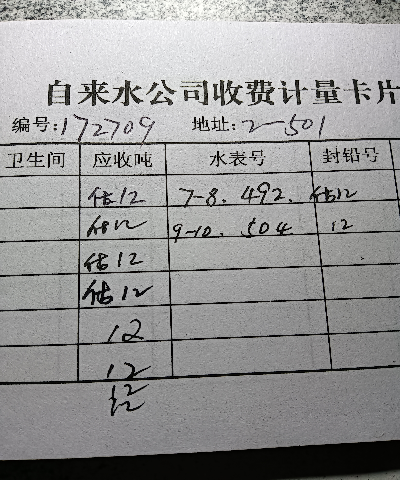 自来水公司收费计量卡片
编号:172709 地址:2-501
卫生间 应收吨 水表号 封铅号
估12 7-8. 492. 估12
估12 9-10. 504 12
估12
估12
12
12